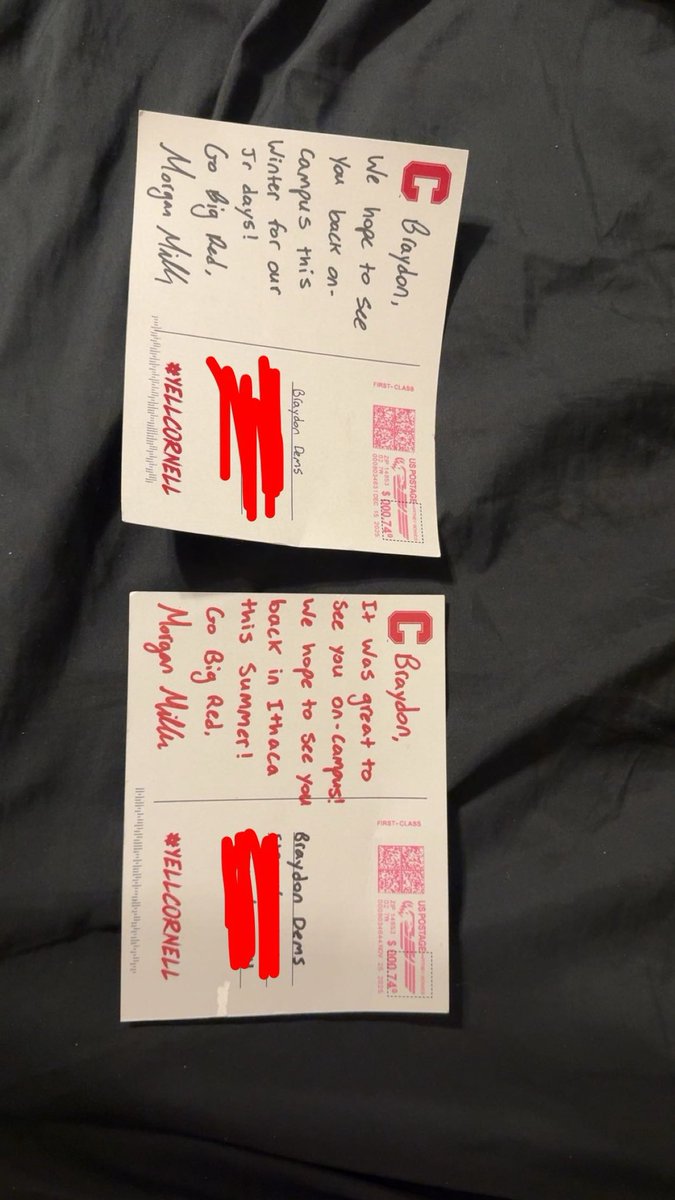 C
Braydon,
We hope to see
you back on-
campus this
Winter for our
Jr days!
Go Big Red,
Morgan Mills
FIRST-CLASS
US POSTAGE
ZIP 14853
02 7W
$ 000.74⁰
DEC 15 2025
Braydon Dems
#YELLCORNELL
C
Braydon,
It was great to
see you on-campus!
We hope to see you
back in Ithaca
this Summer!
Go Big Red,
Morgan Mills
FIRST-CLASS
US POSTAGE
ZIP 14853
02 7W
$ 000.74⁰
NOV 25 2025
Braydon Dems
#YELLCORNELL